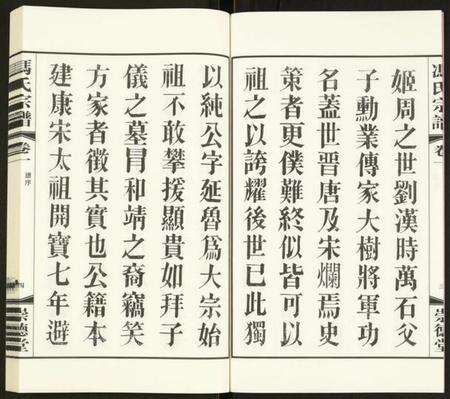 馮氏宗譜
卷一
姬周之世劉漢時萬石父
子勳業傳家大樹將軍功
名蓋世晉唐及宋爛焉史
策者更僕難終似皆可以
祖之以誇耀後世已此獨
崇德堂
以純公字延魯爲大宗始
祖不敢攀援顯貴如拜子
儀之墓冒和靖之裔竊笑
方家者徵其實也公籍本
建康宋太祖開寶七年避
馮氏宗譜
卷一
總序
崇德堂